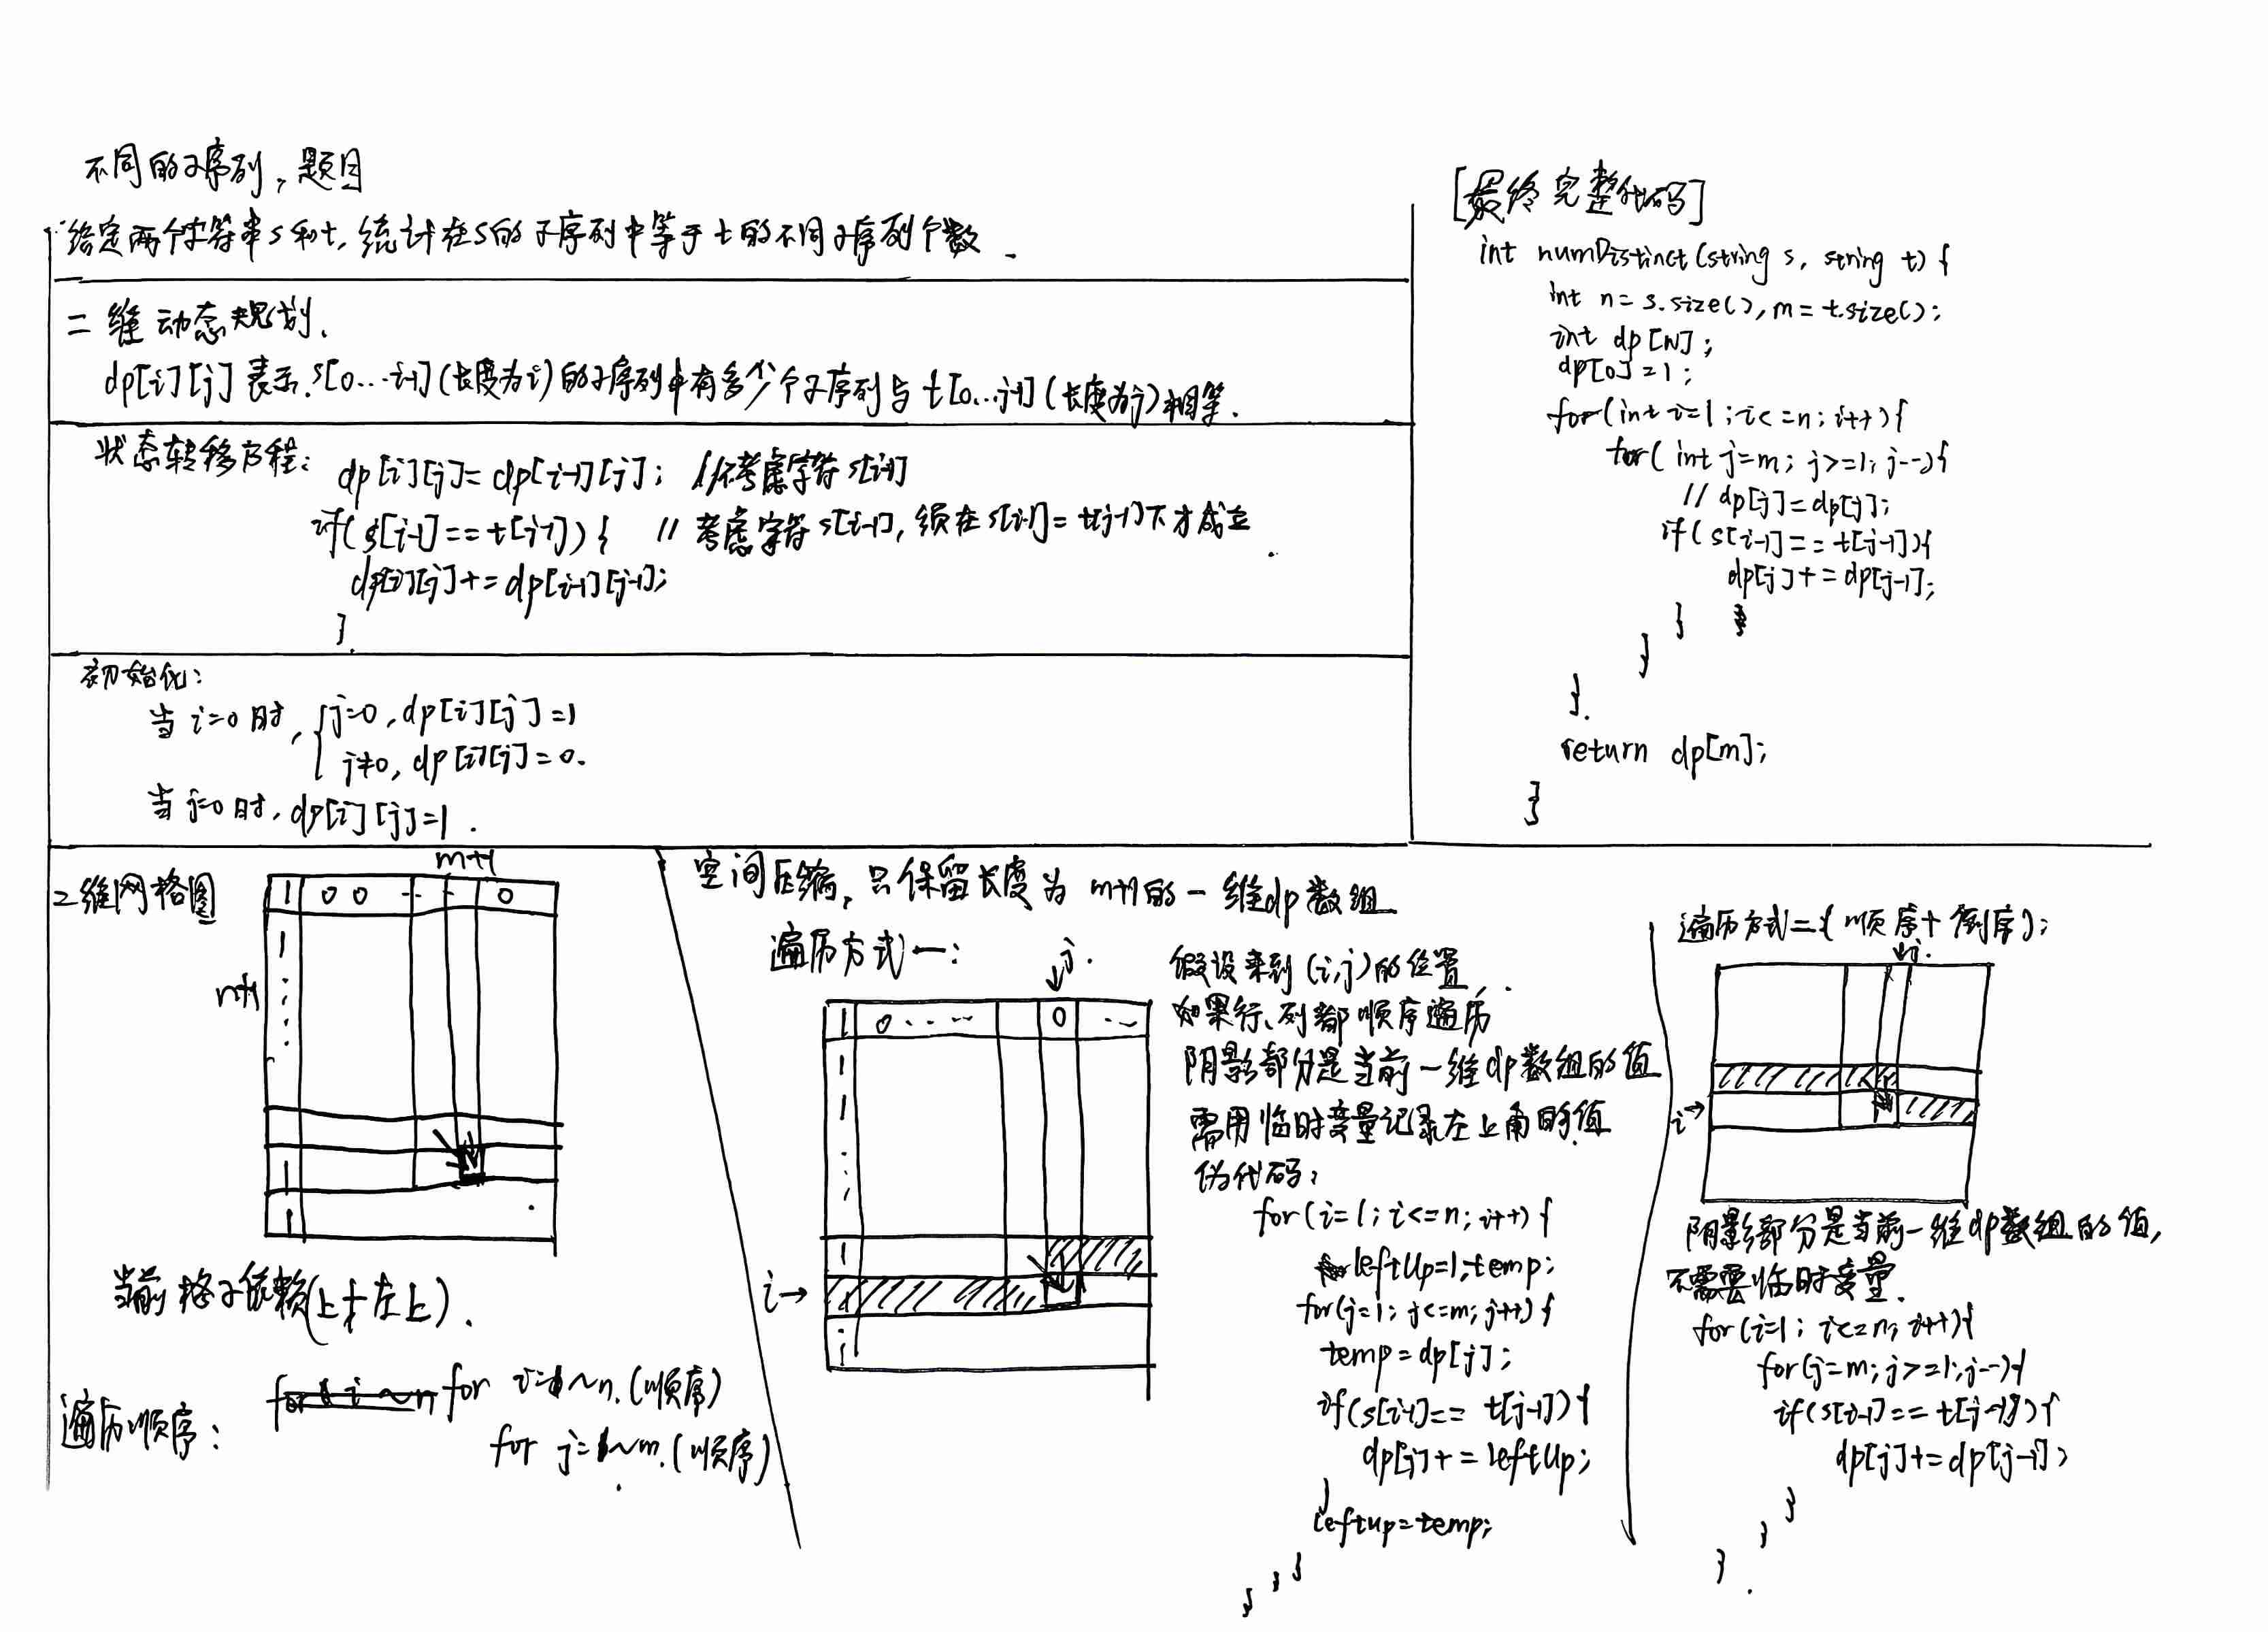 不同的子序列，题目
给定两个字符串s和t，统计在s的子序列中等于t的不同子序列个数.
二维动态规划.
dp[i][j]表示s[0...i-1](长度为i)的子序列中有多少个子序列与t[0...j-1](长度为j)相等.
状态转移方程: dp[i][j]= dp[i-1][j]; //不考虑字符s[i-1]
if(s[i-1]==t[j-1]){ // 考虑字符s[i-1], 须在s[i-1]=t[j-1]下才成立
dp[i][j]+=dp[i-1][j-1];
}
初始化:
当i=0时, { j=0, dp[i][j]=1
j≠0, dp[i][j]=0.
当j=0时, dp[i][j]=1.
[最终完整代码]
int numDistinct(string s, string t){
int n=s.size(), m=t.size();
int dp[N];
dp[0]=1;
for(int i=1; i<=n; i++){
for(int j=m; j>=1; j--){
// dp[j]=dp[j];
if(s[i-1]==t[j-1]){
dp[j]+=dp[j-1];
}
}
}
return dp[m];
}
二维网格图
m+1
1 0 0 ... 0
n+1
1
1
1
当前格子依赖(上+左上).
遍历顺序: for i=1~n.(顺序)
for j=1~m.(顺序)
空间压缩, 只保留长度为m+1的一维dp数组
遍历方式一:
j.
1 0 ... 0 ...
1
1
1
i→
假设来到(i,j)的位置,
如果行、列都顺序遍历
阴影部分是当前一维dp数组的值
需用临时变量记录左上角的值
伪代码:
for(i=1; i<=n; i++){
leftUp=1,temp;
for(j=1; j<=m; j++){
temp=dp[j];
if(s[i-1]==t[j-1]){
dp[j]+=leftUp;
}
leftup=temp;
}
}
遍历方式二(顺序+倒序):
j.
i→
阴影部分是当前一维dp数组的值,
不需要临时变量.
for(i=1; i<=n; i++){
for(j=m; j>=1; j--){
if(s[i-1]==t[j-1]){
dp[j]+=dp[j-1];
}
}
}